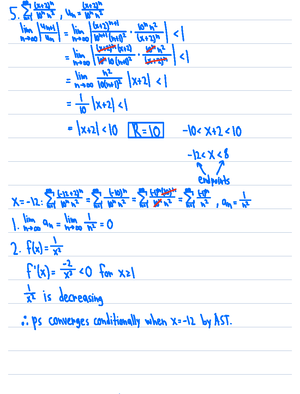 5. ∞Σn=1 (x+2)^n / 10^n n^2 , u_n = (x+2)^n / 10^n n^2
lim n→∞ |u_n+1 / u_n| = lim n→∞ |(x+2)^n+1 / 10^n+1 (n+1)^2 · 10^n n^2 / (x+2)^n| < 1
= lim n→∞ |(x+2)^n (x+2) / 10^n 10 (n+1)^2 · 10^n n^2 / (x+2)^n| < 1
= lim n→∞ n^2 / 10(n+1)^2 |x+2| < 1
= 1/10 |x+2| < 1
= |x+2| < 10 R = 10 -10 < x+2 < 10
-12 < x < 8
endpoints
x = -12: ∞Σn=1 (-12+2)^n / 10^n n^2 = ∞Σn=1 (-10)^n / 10^n n^2 = ∞Σn=1 (-1)^n (10)^n / 10^n n^2 = ∞Σn=1 (-1)^n / n^2 , a_n = 1/n^2
1. lim n→∞ a_n = lim n→∞ 1/n^2 = 0
2. f(x) = 1/x^2
f'(x) = -2/x^3 < 0 for x≥1
1/x^2 is decreasing
∴ ps converges conditionally when x = -12 by AST.